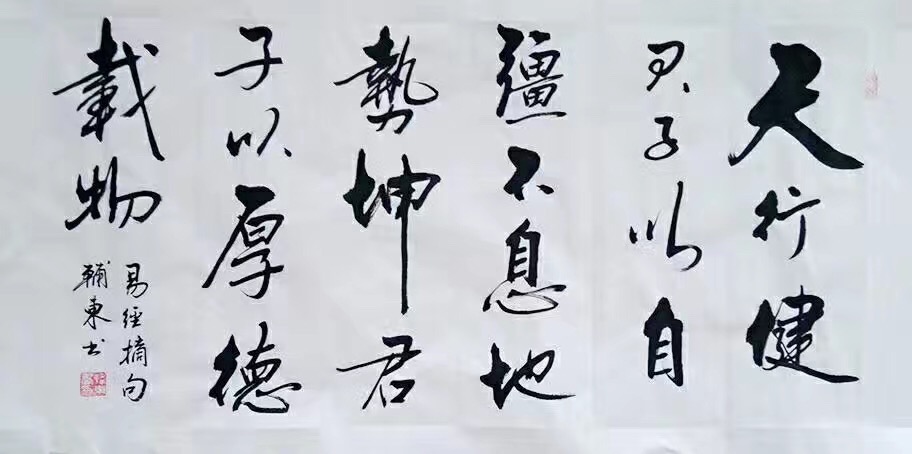 天行健
君子以自
彊不息地
勢坤君
子以厚德
載物
易經摘句
輔東书